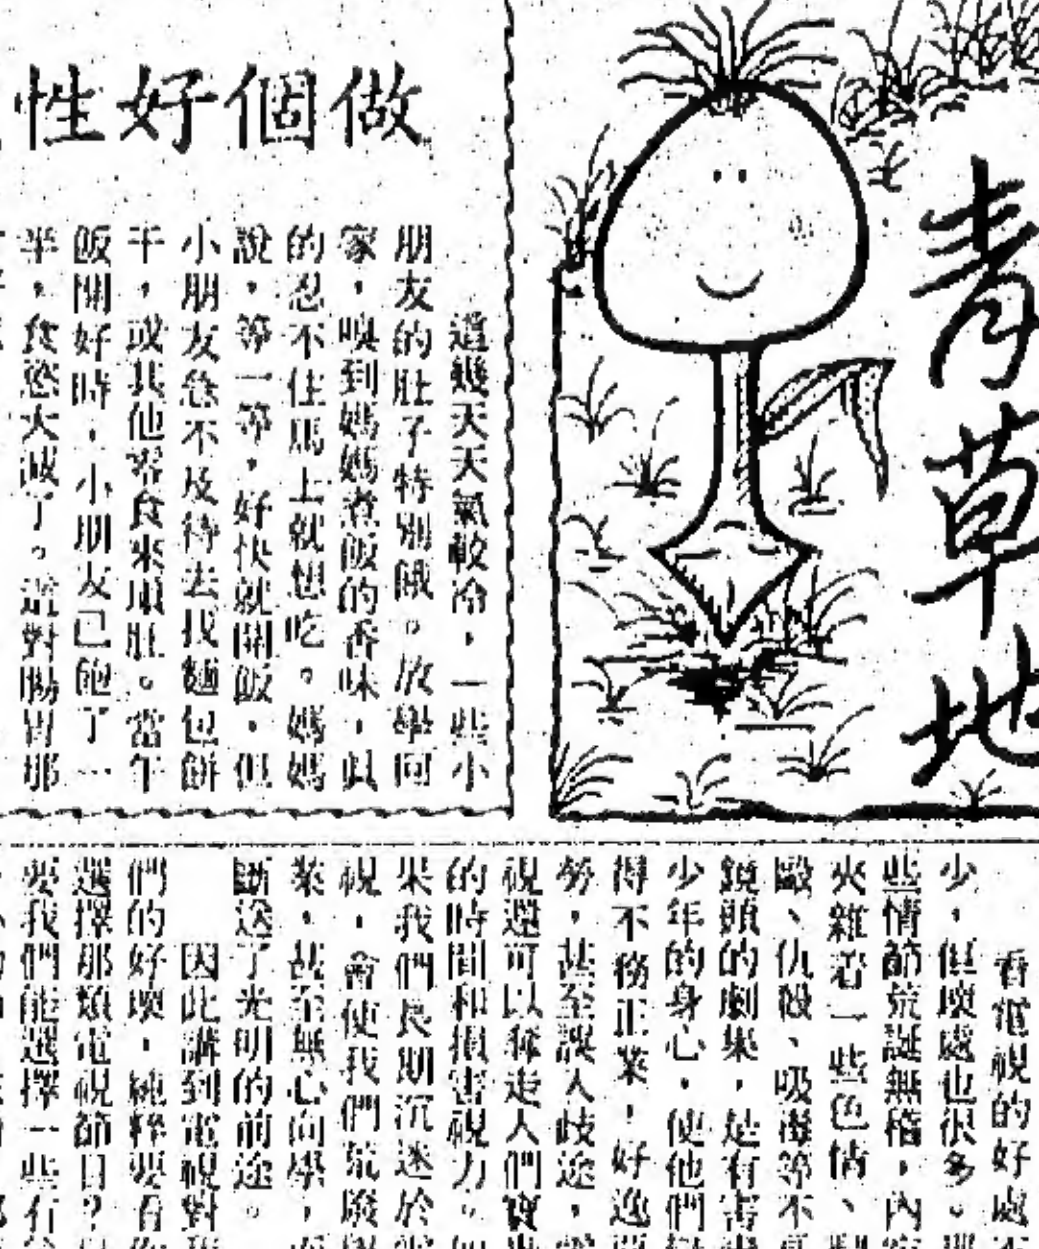 青草地
做個好性
這幾天天氣較冷，一些小
朋友的肚子特別餓。放學回
家，嗅到媽媽煮飯的香味，眞
的忍不住馬上就想吃。媽媽
說，等一等，好快就開飯，但
小朋友急不及待去找麵包餅
干，或其他零食來頂肚。當午
飯開好時，小朋友已飽了一
半，食慾大減了。這對腸胃那
看電視的好處
少，但壞處也很多。
些情節荒誕無稽，內
夾雜着一些色情、
毆、仇殺、吸毒等不
鏡頭的劇集，是有害
少年的身心，使他們
得不務正業，好逸
勞，甚至誤入歧途，
視還可以奪走人們寶
的時間和損害視力。
果我們長期沉迷於
視，會使我們荒廢
業，甚至無心向學，
斷送了光明的前途。
因此講到電視對
們的好壞，純粹要看
選擇那類電視節目？
要我們能選擇一些有